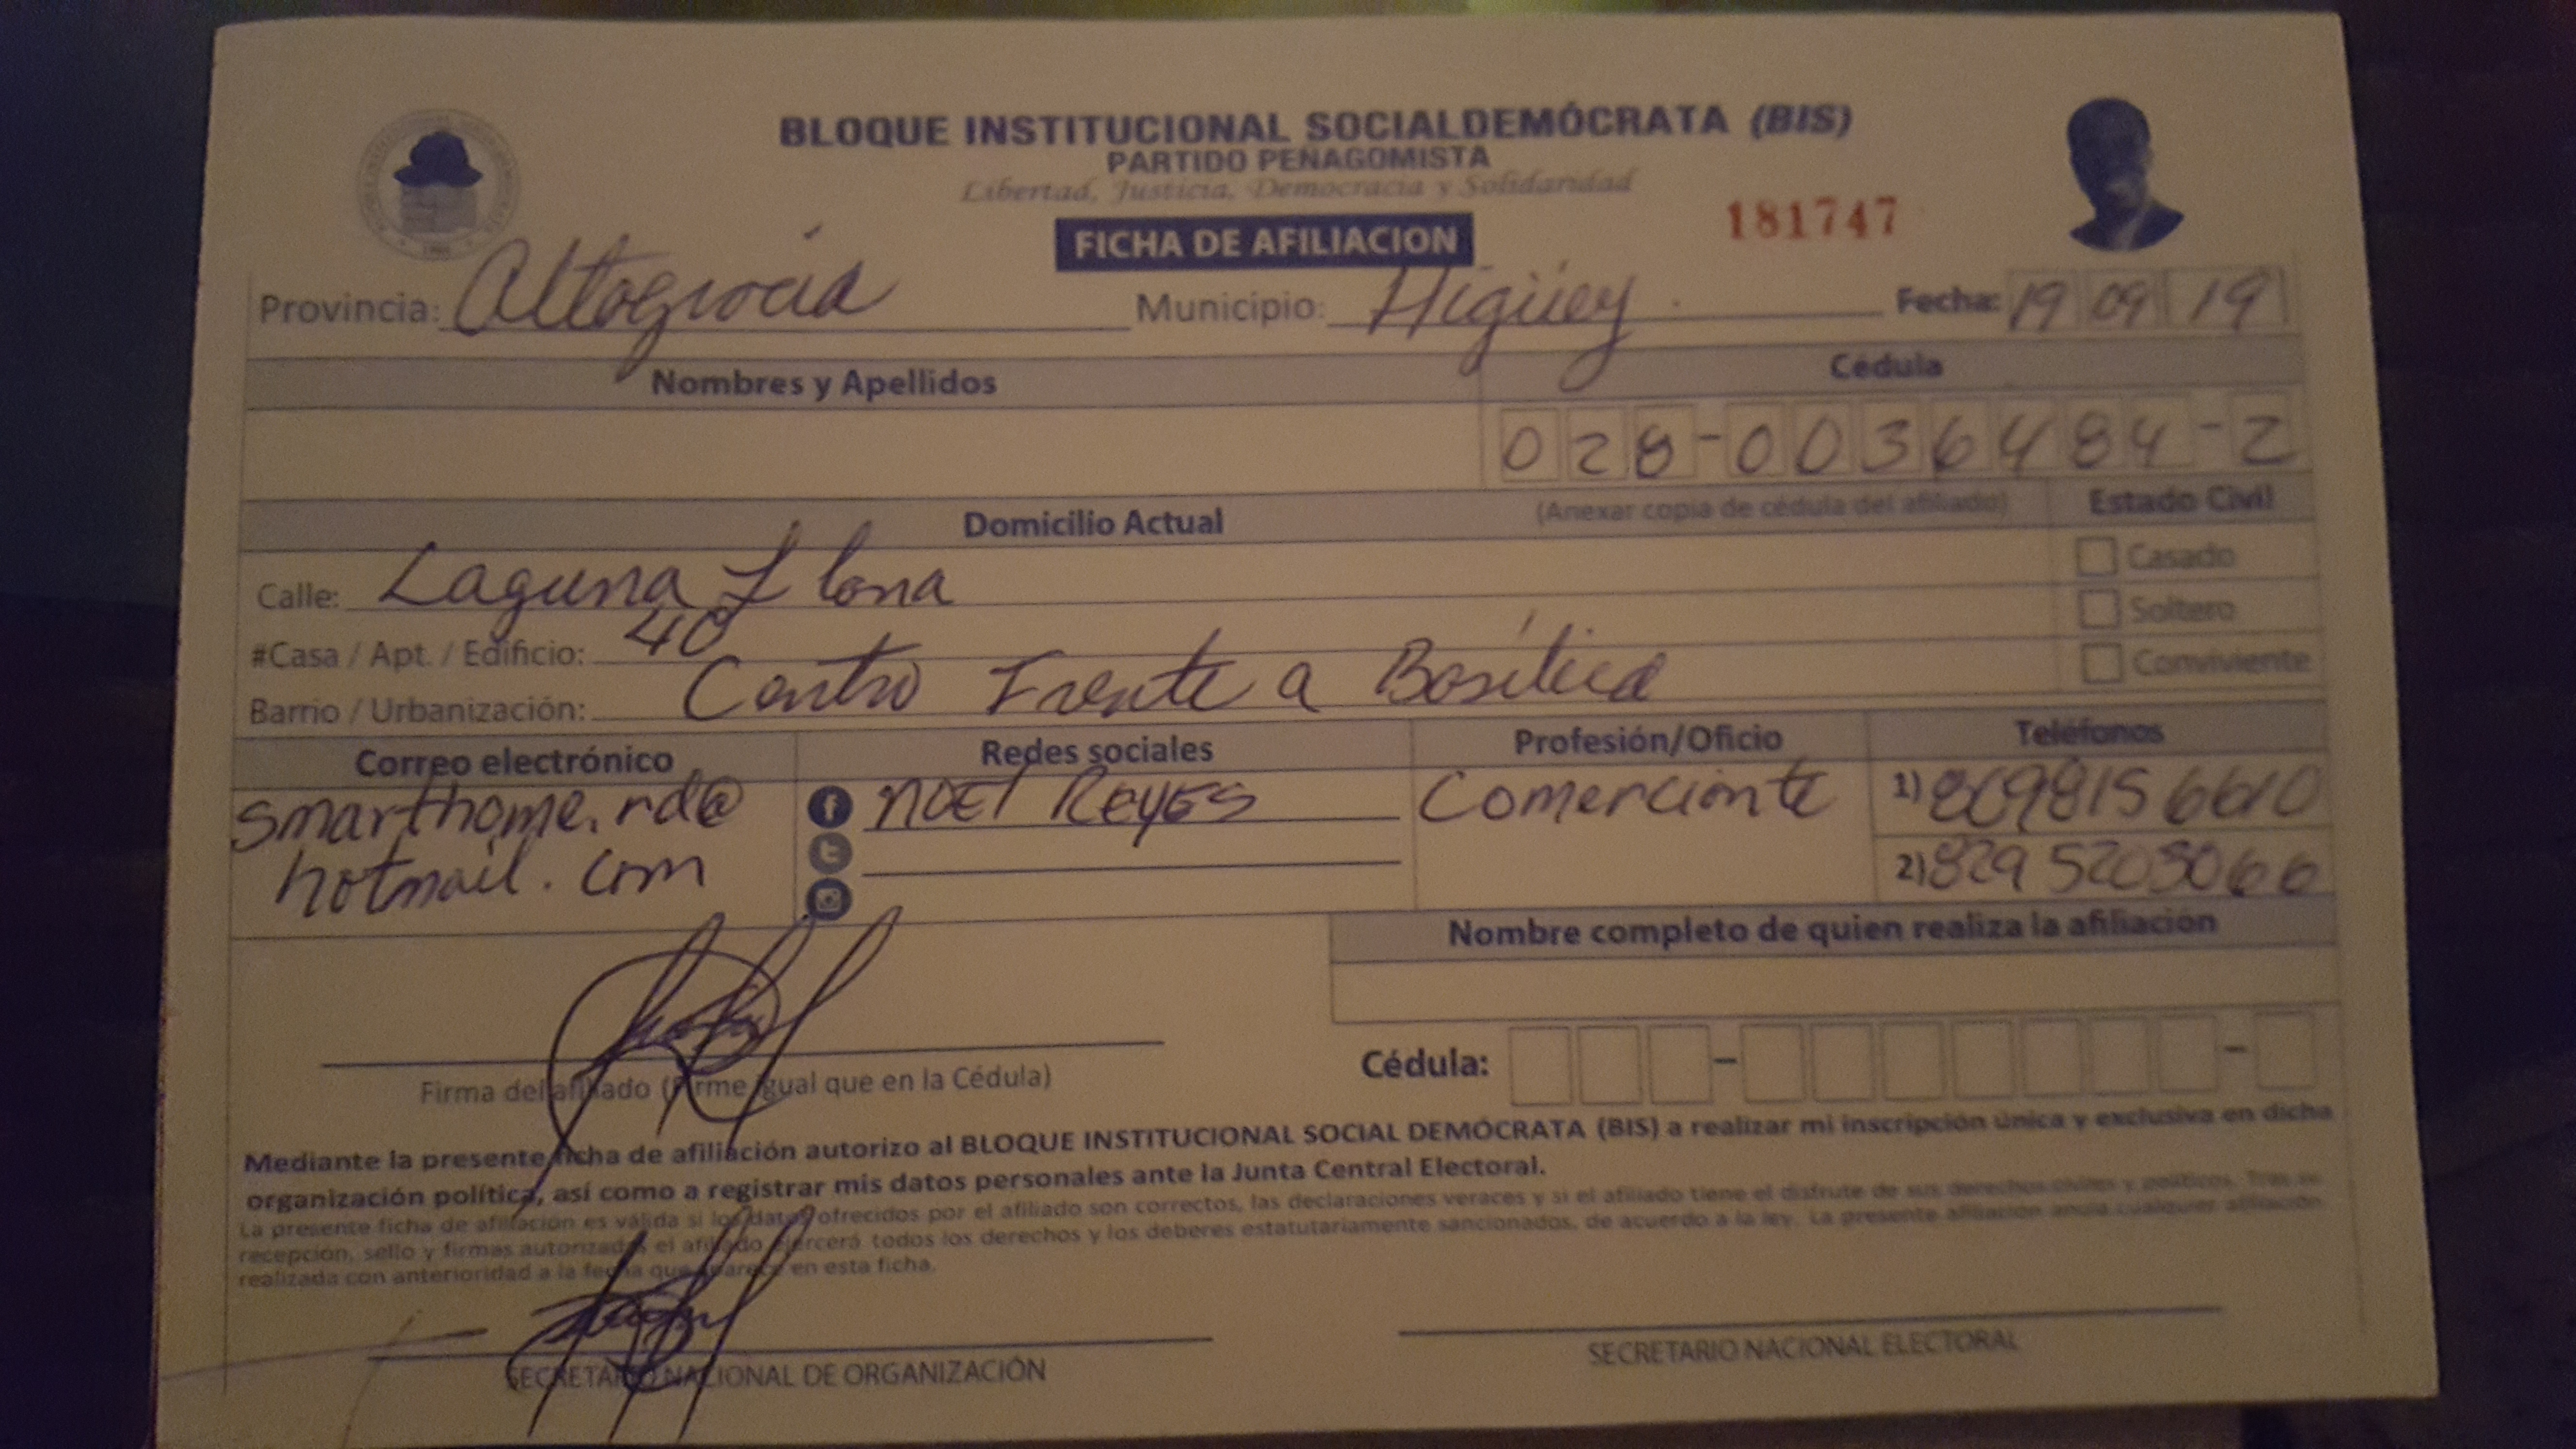 BLOQUE INSTITUCIONAL SOCIALDEMÓCRATA (BIS)
PARTIDO PEÑAGOMISTA
Libertad, Justicia, Democracia y Solidaridad
181747
FICHA DE AFILIACION
Provincia: Altagracia Municipio: Higüey Fecha: 19 09 19
Nombres y Apellidos Cédula
028-0036484-2
Domicilio Actual (Anexar copia de cédula del afiliado) Estado Civil
Calle: Laguna Llana Casado
#Casa / Apt. / Edificio: 40 Soltero
Barrio / Urbanización: Centro Frente a Basílica Conviviente
Correo electrónico Redes sociales Profesión/Oficio Teléfonos
smarthome.rd@ noel Reyes Comerciante 1) 8098156610
hotmail.com 2) 829 5205066
Nombre completo de quien realiza la afiliación
Cédula:
Firma del afiliado (Firme igual que en la Cédula)
Mediante la presente ficha de afiliación autorizo al BLOQUE INSTITUCIONAL SOCIAL DEMÓCRATA (BIS) a realizar mi inscripción única y exclusiva en dicha
organización política, así como a registrar mis datos personales ante la Junta Central Electoral.
La presente ficha de afiliación es válida si los datos ofrecidos por el afiliado son correctos, las declaraciones veraces y si el afiliado tiene el disfrute de sus derechos civiles y políticos. Tras su
recepción, sello y firmas autorizadas el afiliado ejercerá todos los derechos y los deberes estatutariamente sancionados, de acuerdo a la ley. La presente afiliación anula cualquier afiliación
realizada con anterioridad a la fecha que aparece en esta ficha.
SECRETARIO NACIONAL DE ORGANIZACIÓN SECRETARIO NACIONAL ELECTORAL